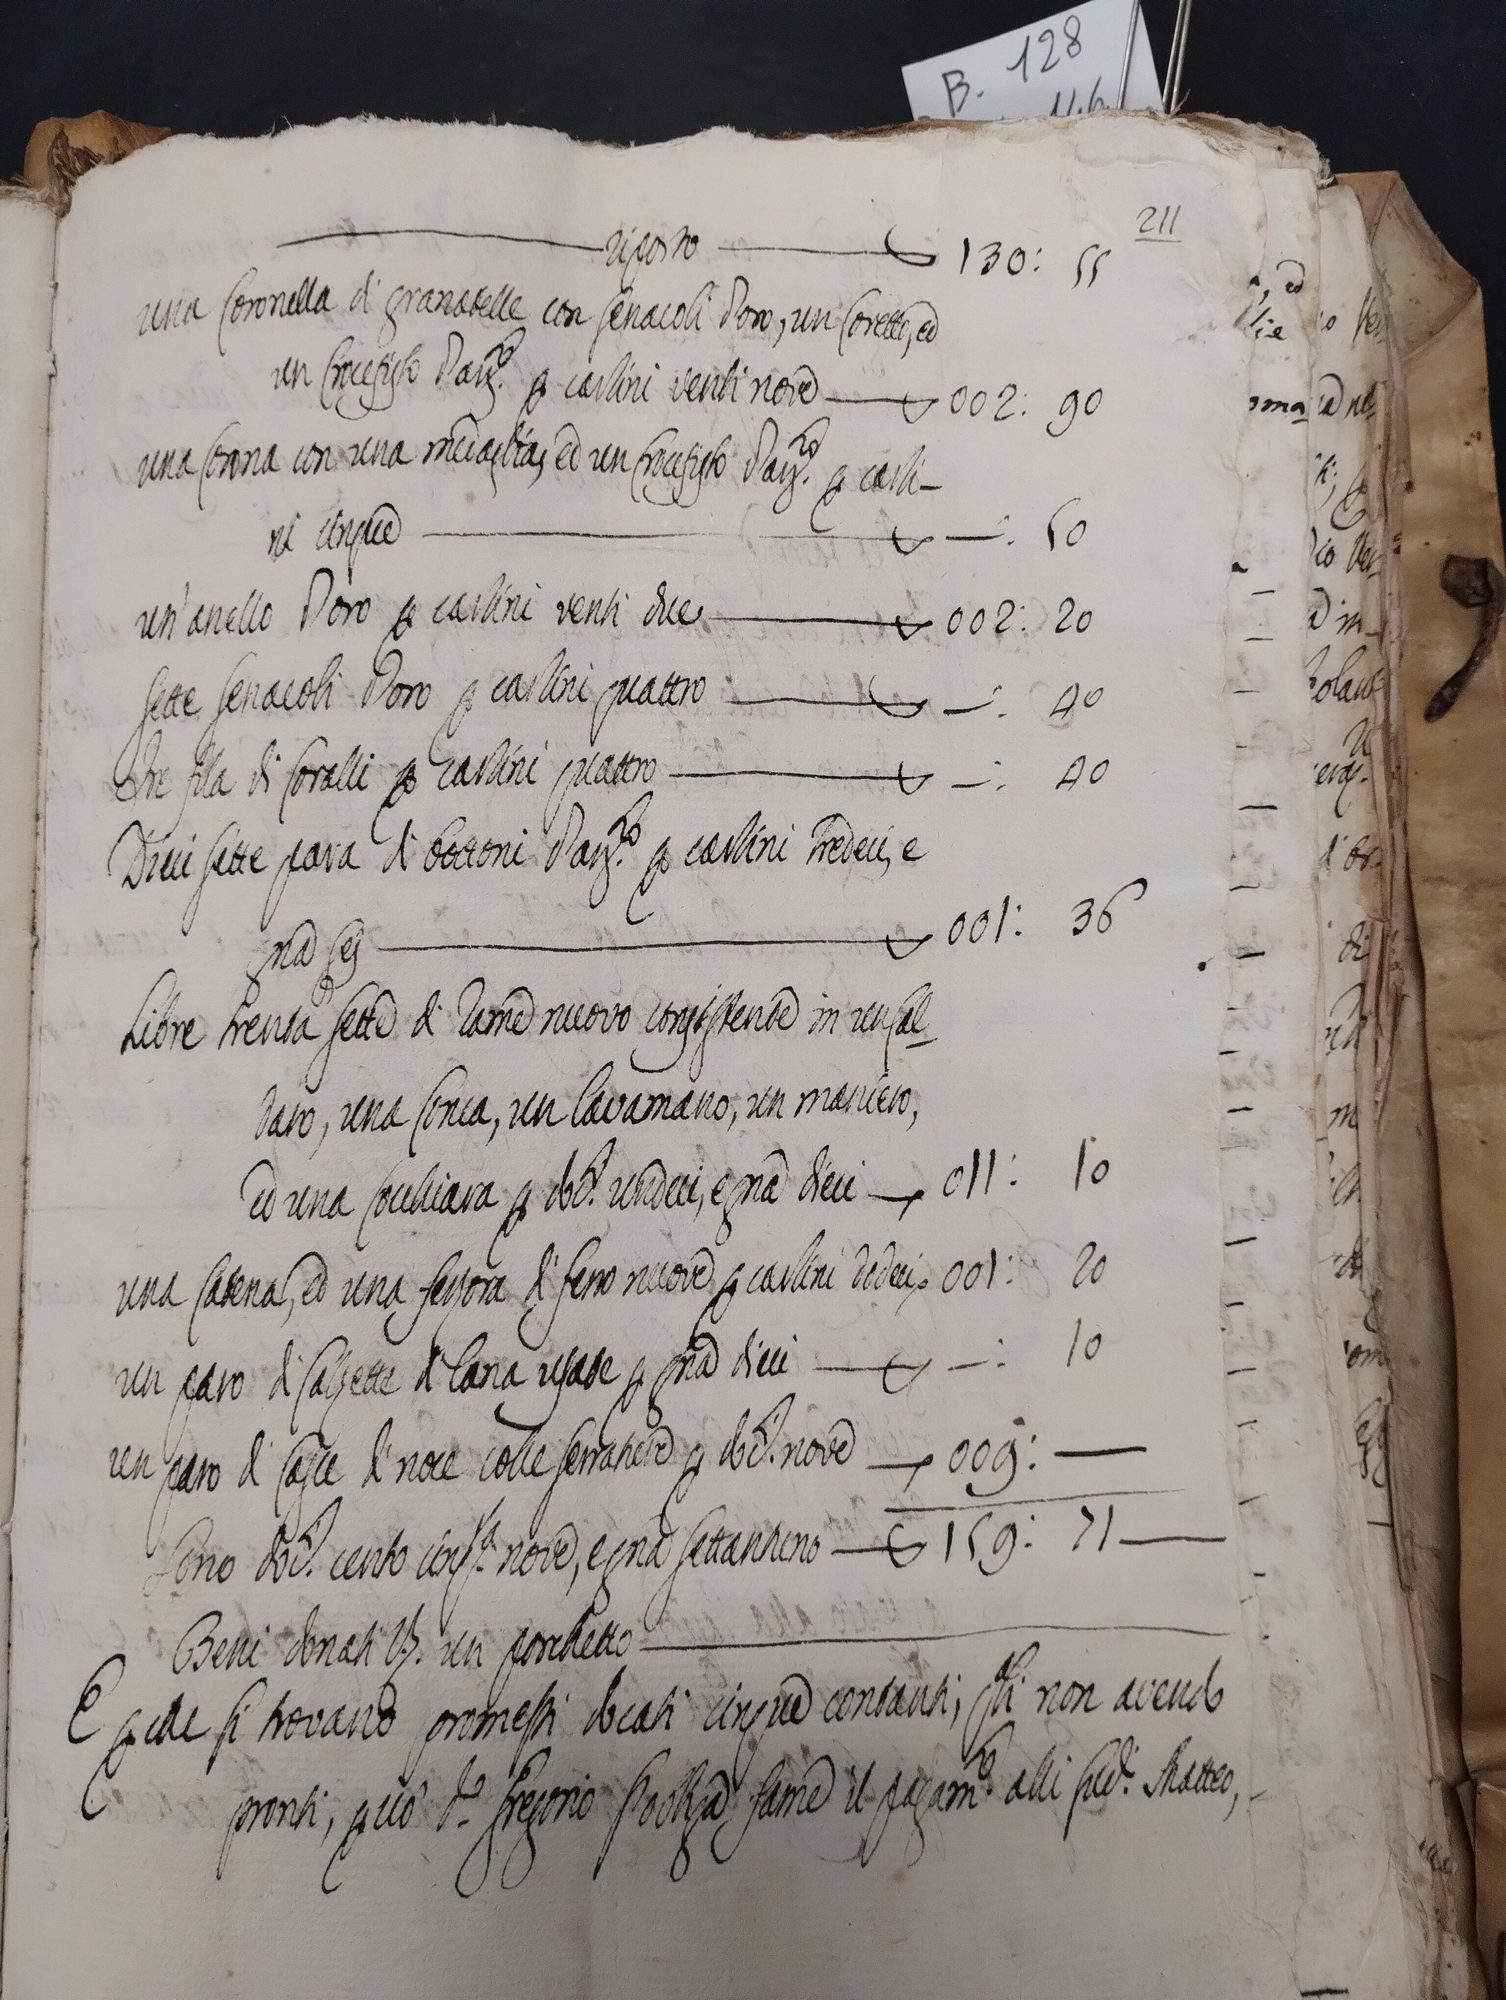 B. 128
211
riposto 130: 55
una Coronella di granatelle con senacoli d'oro, un Coretto, ed
un Crocefisso d'arg.to p carlini venti nove 002: 90
una Corona con una medaglia, ed un Crocefisso d'arg.to p carli-
ni cinque —: 50
un'anello d'oro p carlini venti due 002: 20
sette senacoli d'oro p carlini quattro —: 40
tre fila di Coralli p carlini quattro —: 40
Dieci sette para di bottoni d'arg.to p carlini tredeci, e
gna sej 001: 36
Libre trenta sette di Rame nuovo consistente in un cal-
daro, una Conca, un lavamano, un maniero,
ed una Cocchiara p doc.ti undeci, e gna dieci 011: 10
una Catena, ed una sersora di ferro nuove p carlini dodeci 001: 20
un paro di Calzette di lana usate p gna dieci —: 10
un paro di Casce di noce colle serrature p doc.ti nove 009: —
Sono doc.ti cento cinq.ta nove, e gna settantuno 159: 71 —
Beni donati Vz. un porchetto
E p che si trovano promessi docati cinque contanti, q.li non avendo
pronti, p ciò d.o Gregorio s'obliga farne il pagam.to alli sud.i Matteo,